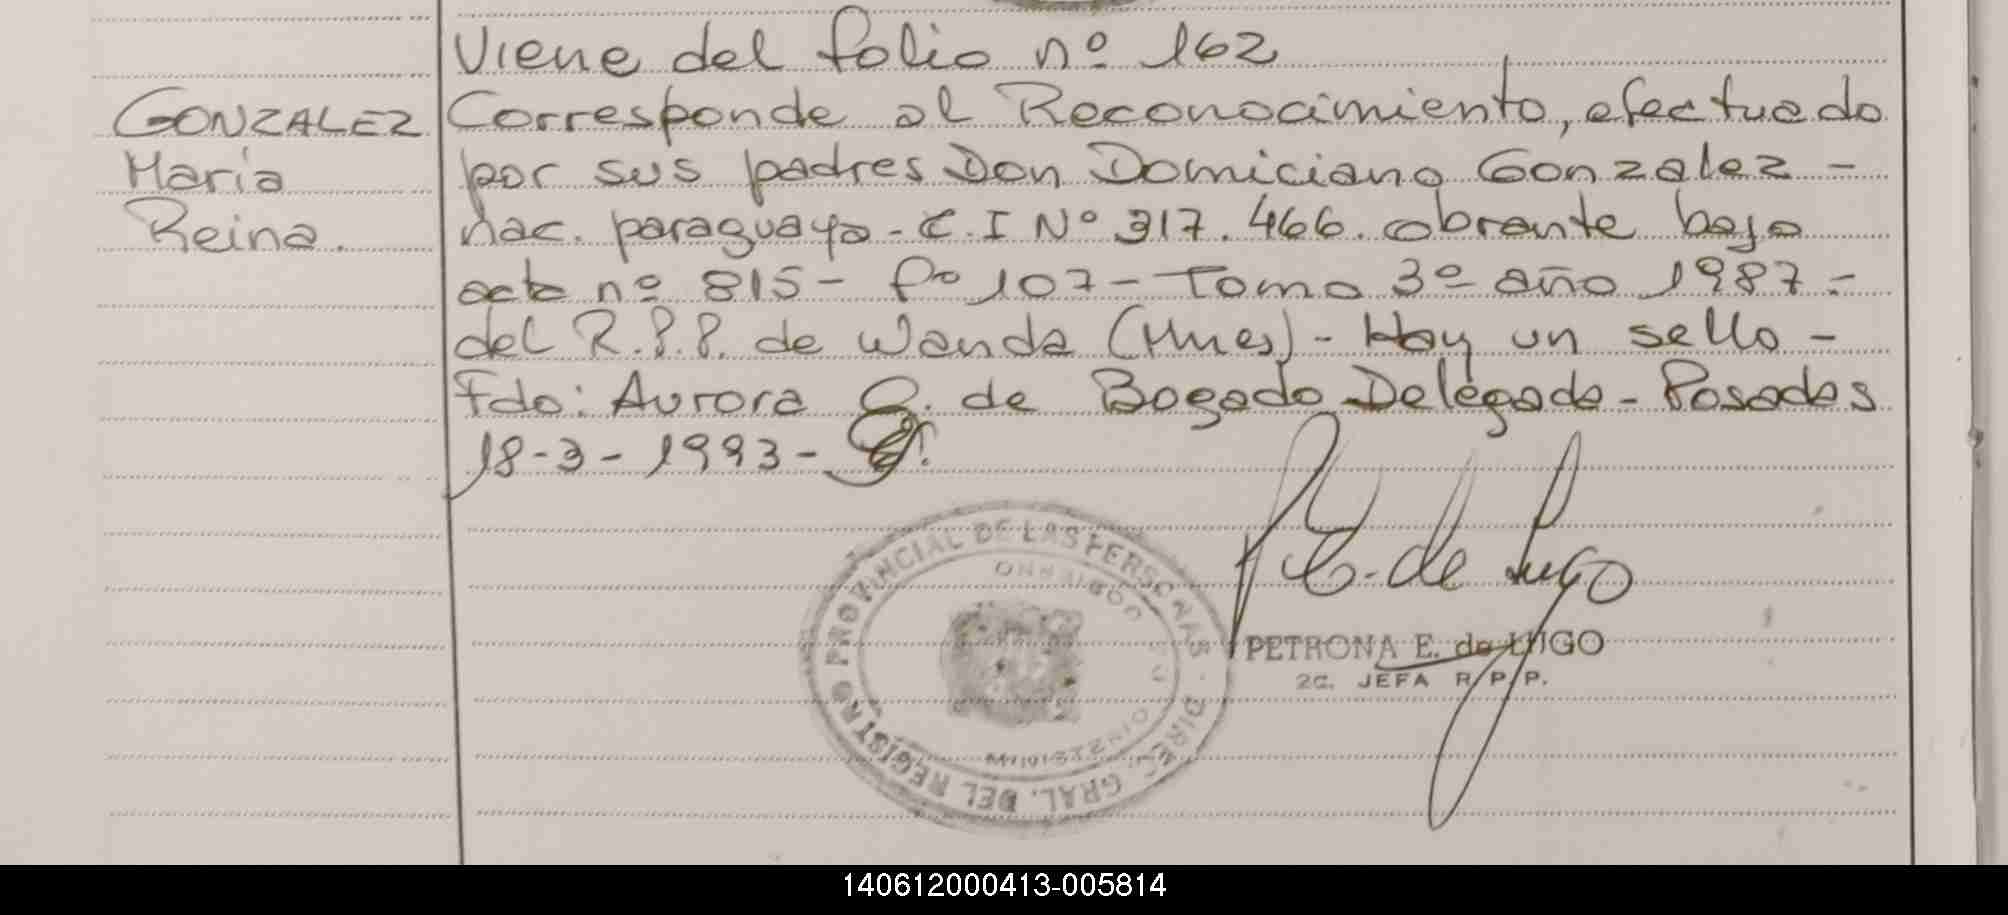 Viene del folio nº 162
GONZALEZ
Maria
Reina.
Corresponde al Reconocimiento, efectuado
por sus padres Don Domiciano Gonzalez -
nac. paraguaya - C. I Nº 317.466. obrante bajo
acta nº 815 - fº 107 - Tomo 3º año 1987 -
del R.P.P. de Wanda (Mnes) - Hay un sello -
Fdo: Aurora G. de Bogado Delegada - Posadas
18-3-1993-
E. de Lugo
PETRONA E. de LUGO
2a. JEFA R.P.P.
DIREC. GRAL. DEL REGISTRO PROVINCIAL DE LAS PERSONAS
GOBIERNO
MISIONES
140612000413-005814